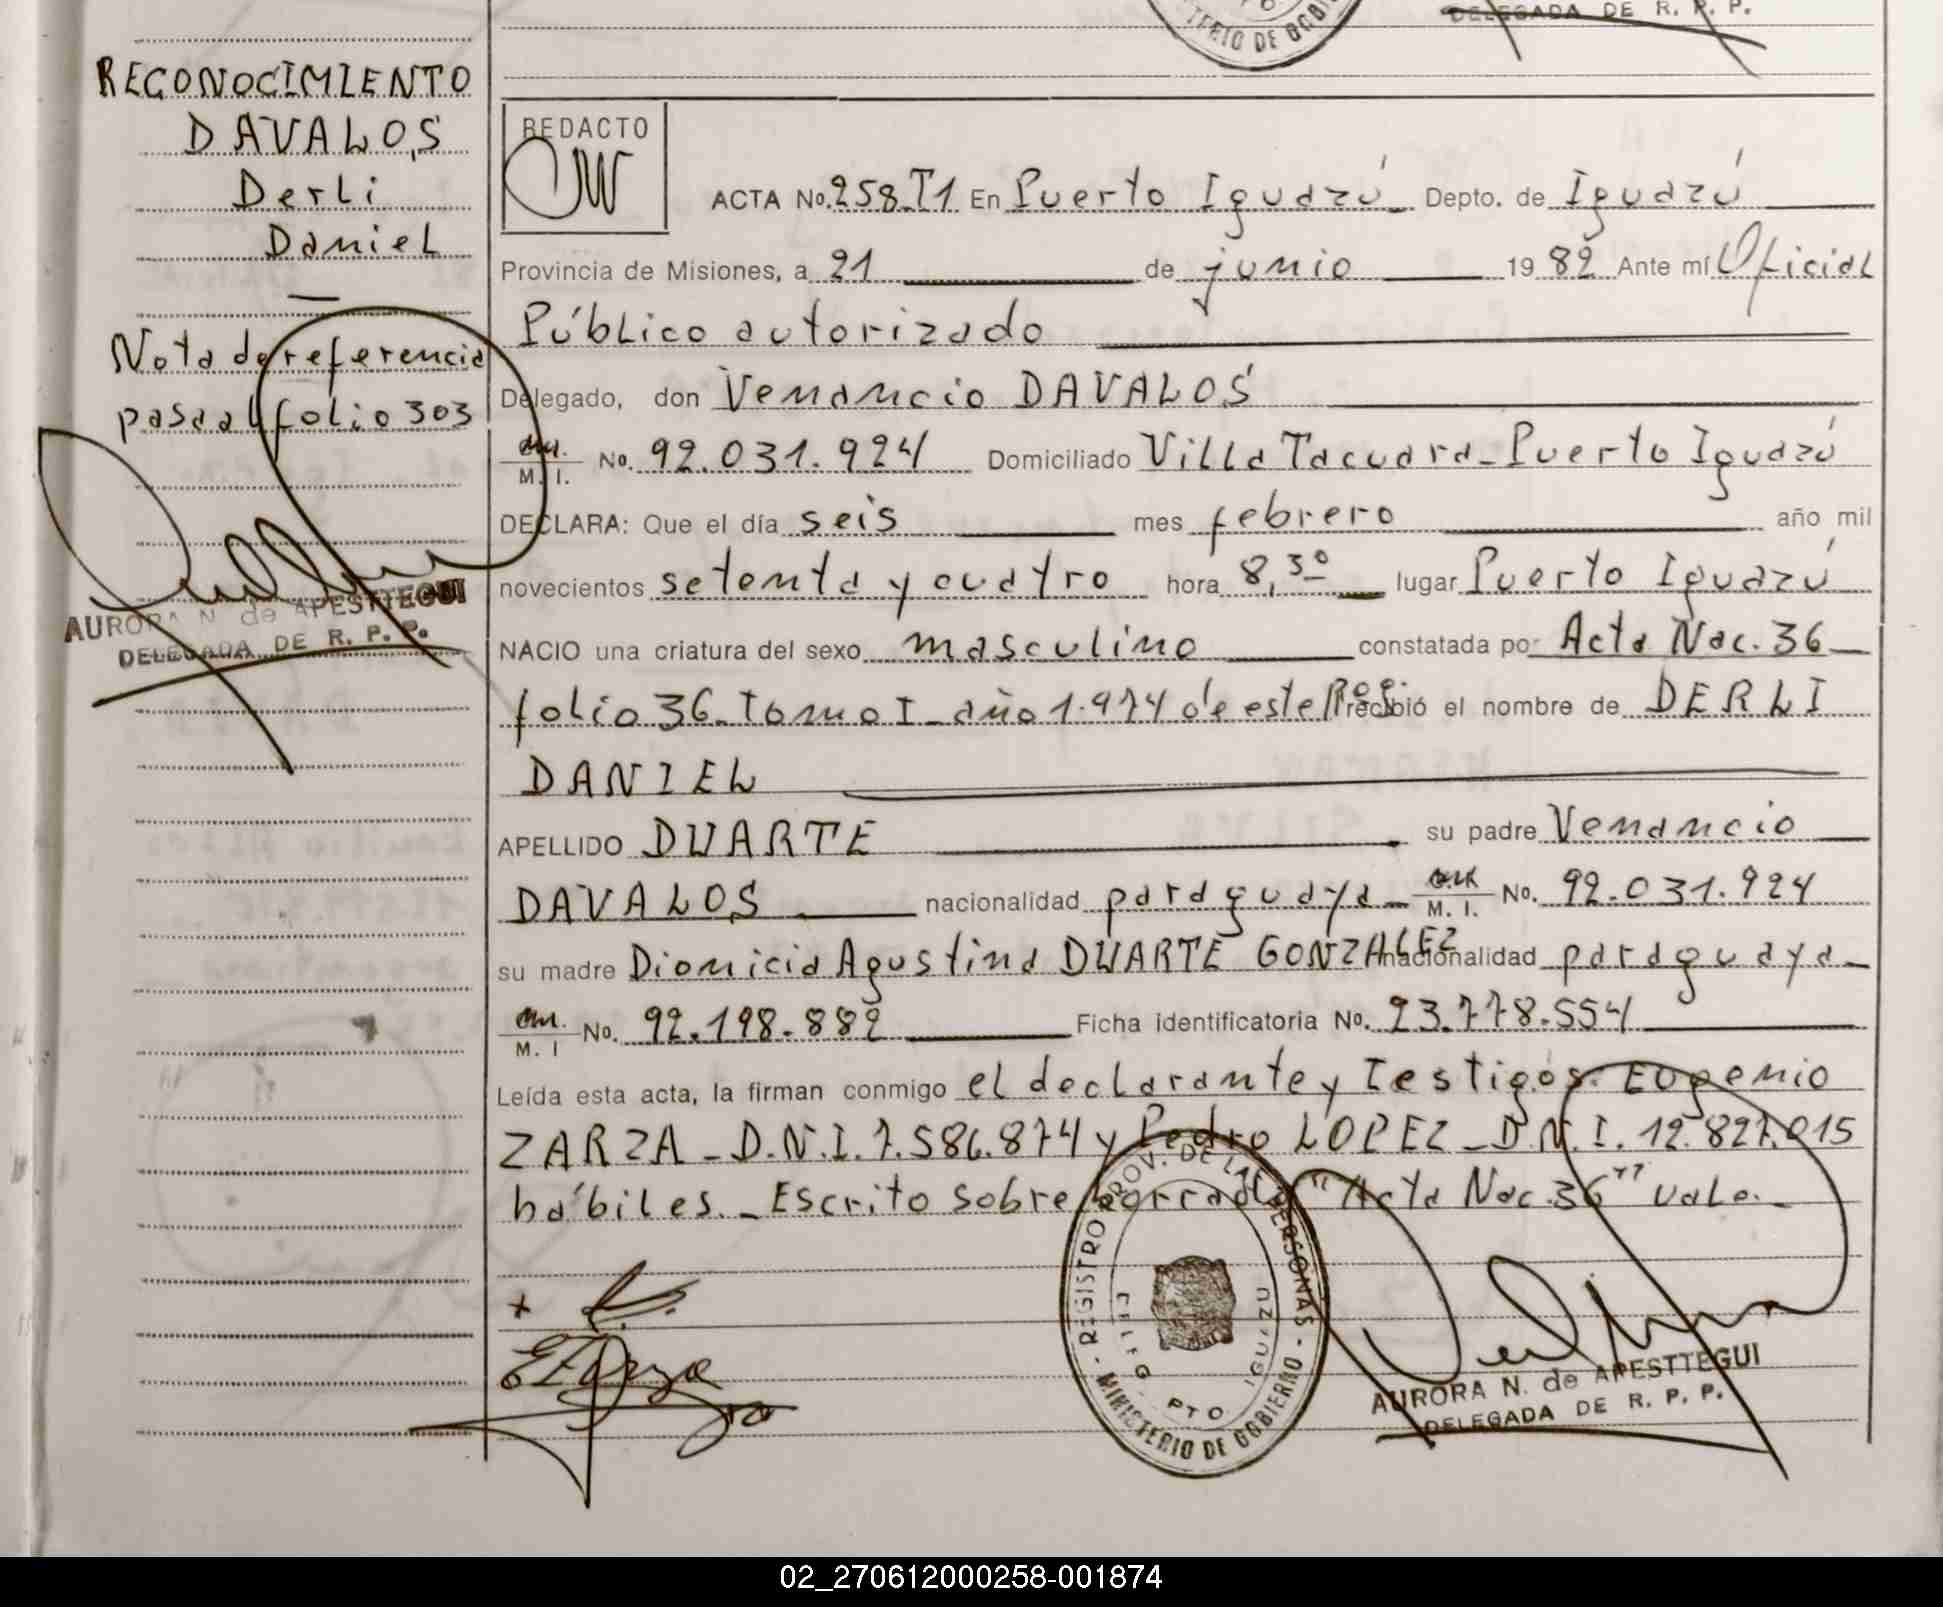 DELEGADA DE R. P. P.
TERIO DE GOBI
RECONOCIMIENTO
DAVALOS
Derli
Daniel
Nota de referencia
pasa al folio 303
AURORA N. de APESTTEGUI
DELEGADA DE R. P. P.
REDACTO
ACTA No. 258_T1 En Puerto Iguazú_ Depto. de Iguazú
Provincia de Misiones, a 21 de junio 19 82 Ante mí Oficial
Público autorizado
Delegado, don Venancio DAVALOS
M. I. No. 92.031.924 Domiciliado Villa Tacuara_Puerto Iguazú
DECLARA: Que el día seis mes febrero año mil
novecientos setenta y cuatro hora 8,30 lugar Puerto Iguazú
NACIO una criatura del sexo masculino constatada por Acta Nac. 36
folio 36_Tomo I_año 1.974 de este Reg. recibió el nombre de DERLI
DANIEL
APELLIDO DUARTE su padre Venancio
DAVALOS nacionalidad paraguaya_ M. I. No. 92.031.924
su madre Dionicia Agustina DUARTE GONZALEZ nacionalidad paraguaya_
M. I No. 92.198.882 Ficha identificatoria No. 23.778.554
Leída esta acta, la firman conmigo el declarante y Testigos. Eugenio
ZARZA_D.N.I.7.586.874 y Pedro LOPEZ_D.N.I.12.827.015
hábiles._Escrito sobre borrado "Acta Nac.36" vale._
REGISTRO PROV. DE LAS PERSONAS - MINISTERIO DE GOBIERNO -
DELEG. PTO. IGUAZU
AURORA N. de APESTTEGUI
DELEGADA DE R. P. P.
02_270612000258-001874